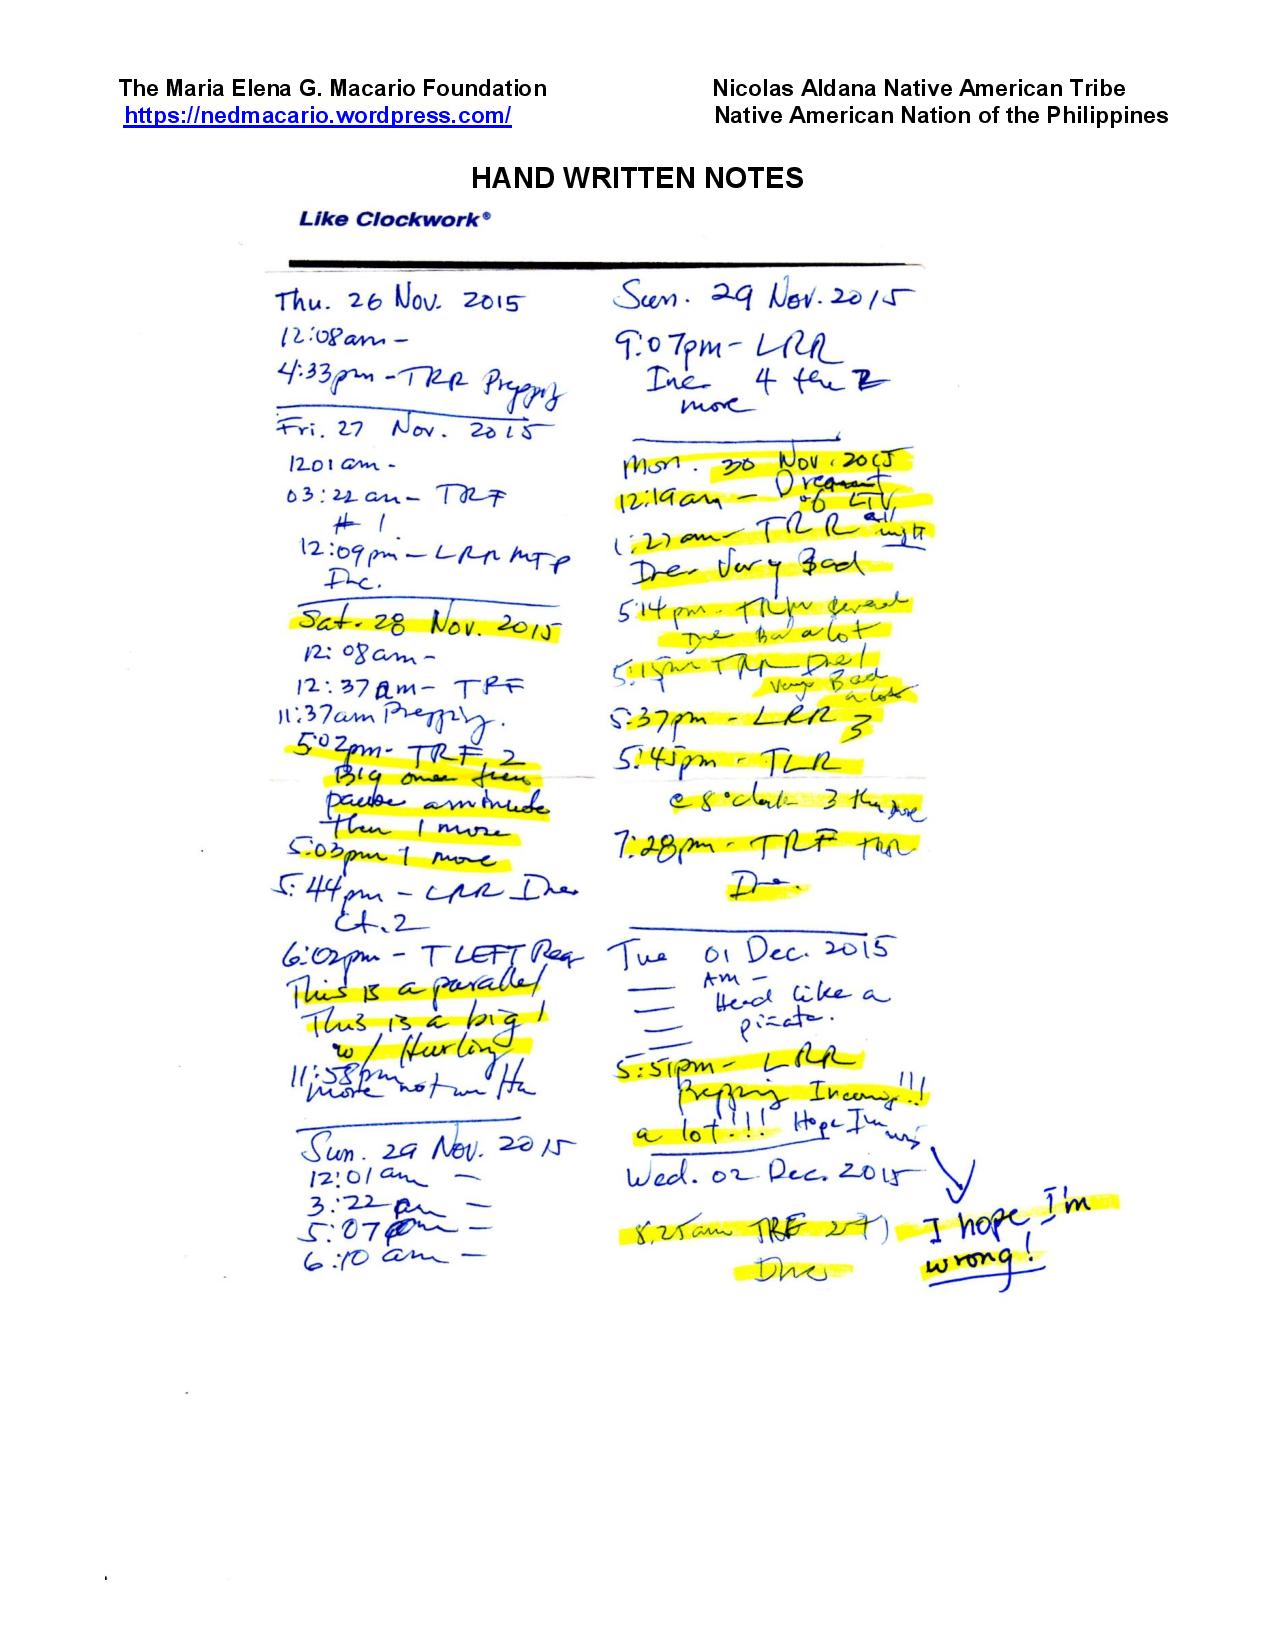 The Maria Elena G. Macario Foundation
https://nedmacario.wordpress.com/
Nicolas Aldana Native American Tribe
Native American Nation of the Philippines
HAND WRITTEN NOTES
Like Clockwork®
Thu. 26 Nov. 2015
12:08am -
4:33pm - TRR
Fri. 27 Nov. 2015
1201am -
03:22am - TRF
# 1
12:09pm - LRR MTP
Inc.
Sat. 28 Nov. 2015
12:08am -
12:37am - TRF
11:37am Prepping.
5:02pm - TRF, 2
Big ones then
pause a minute
then 1 more
5:03pm 1 more
5:44pm - LRR Inc.
Ct. 2
6:02pm - T LEFT Rear
This is a parallel
This is a big 1
w/ Hurling
11:58pm
more not
Sun. 29 Nov. 2015
12:01am -
3:22am -
5:07am -
6:10am -
Sun. 29 Nov. 2015
9:07pm - LRR
Inc. 4 then 2
more
Mon. 30 Nov. 2015
12:19am - Dreamt
of
1:27am - TRR all
night
Inc. Very Bad
5:14pm -
Inc Bad a lot
5:15pm TRR Inc!
Very Bad
a lot
5:37pm - LRR 3
5:45pm - TLR
@ 8 o'clock 3
7:28pm - TRF
Inc.
Tue 01 Dec. 2015
AM -
Head like a
piñata.
5:51pm - LRR
Prepping Incoming!!!
a lot!!! Hope I'm
Wed. 02 Dec. 2015
8:25am TRF
Inc
I hope I'm
wrong!